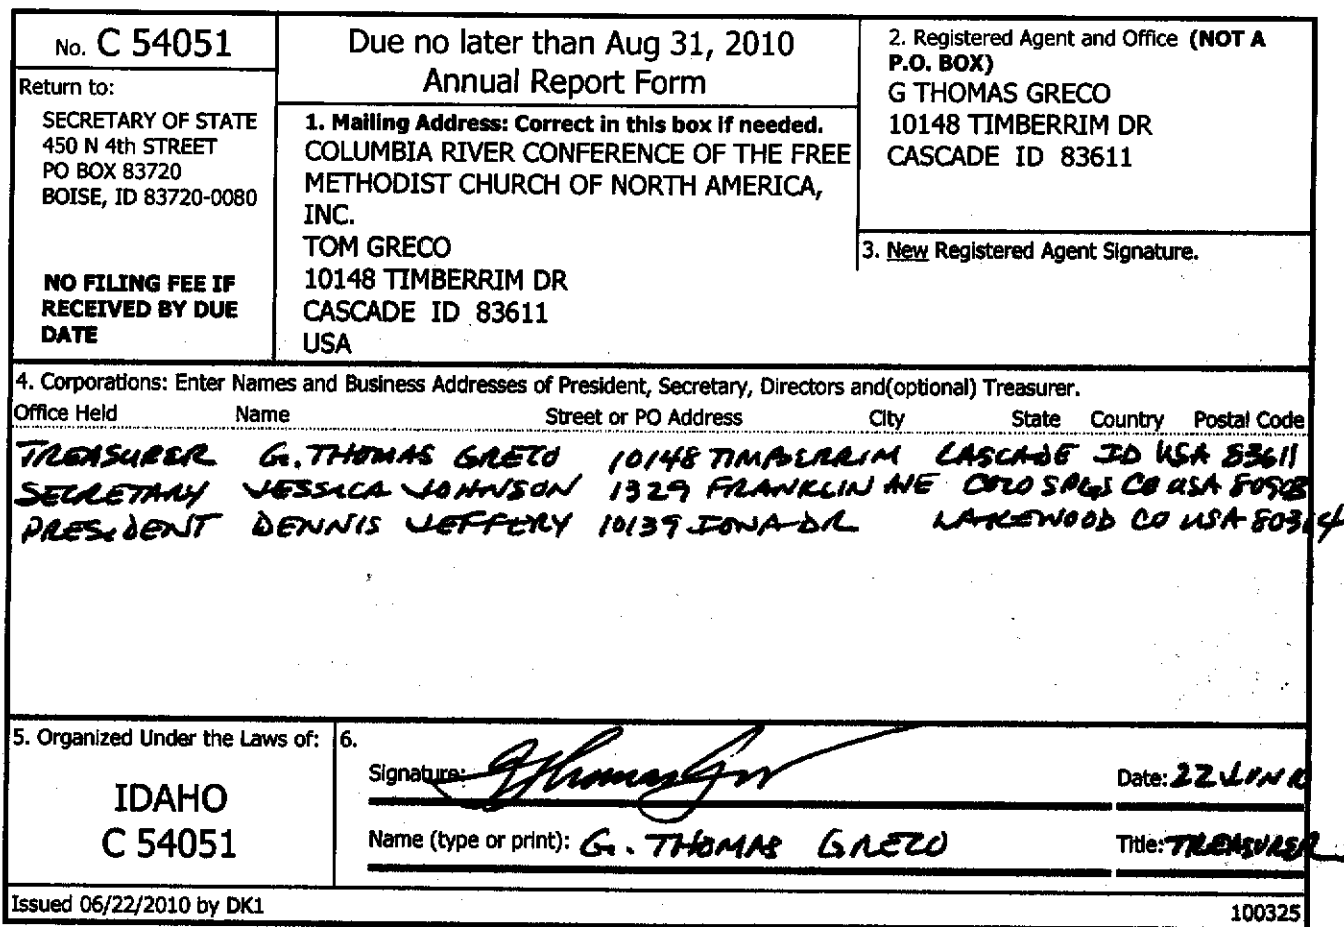 No. C 54051
Return to:
SECRETARY OF STATE
450 N 4th STREET
PO BOX 83720
BOISE, ID 83720-0080
NO FILING FEE IF
RECEIVED BY DUE
DATE
Due no later than Aug 31, 2010
Annual Report Form
1. Mailing Address: Correct in this box if needed.
COLUMBIA RIVER CONFERENCE OF THE FREE
METHODIST CHURCH OF NORTH AMERICA,
INC.
TOM GRECO
10148 TIMBERRIM DR
CASCADE ID 83611
USA
2. Registered Agent and Office (NOT A
P.O. BOX)
G THOMAS GRECO
10148 TIMBERRIM DR
CASCADE ID 83611
3. New Registered Agent Signature.
4. Corporations: Enter Names and Business Addresses of President, Secretary, Directors and(optional) Treasurer.
Office Held Name Street or PO Address City State Country Postal Code
TREASURER G. THOMAS GRECO 10148 TIMBERRIM CASCADE ID USA 83611
SECRETARY JESSICA JOHNSON 1329 FRANKLIN AVE COLO SPGS CO USA
PRESIDENT DENNIS JEFFERY 10139 IONA DR LAKEWOOD CO USA
5. Organized Under the Laws of:
IDAHO
C 54051
6.
Signature: G Thomas Greco
Date: 22 JUN
Name (type or print): G. THOMAS GRECO
Title: TREASURER
Issued 06/22/2010 by DK1
100325